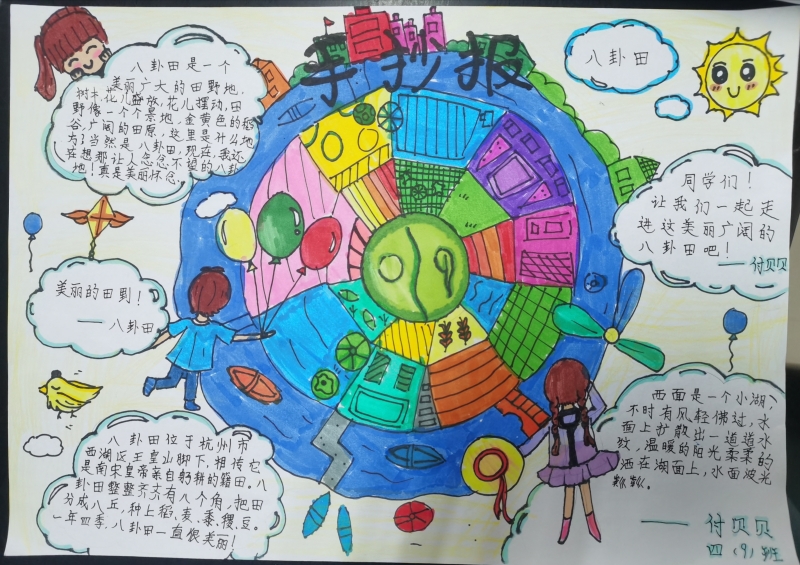 手抄报
八卦田是一个
美丽广大的田野地.
树木花儿盛放,花儿摆动,田
野像一个个景地.金黄色的稻
谷,广阔的田原,这里是什么地
方?当然是八卦田,现在,我还
在想那让人念念不望的八卦
地!真是美丽怀念.
八卦田
同学们!
让我们一起走
进这美丽广阔的
八卦田吧!
——付贝贝
美丽的田到!
——八卦田
八卦田位于杭州市
西湖区玉皇山脚下,相传它
是南宋皇帝亲自躬耕的籍田.八
卦田整整齐齐有八个角,把田
分成八丘,种上稻、麦、黍、稷、豆。
一年四季.八卦田一直很美丽!
西面是一个小湖,
不时有风轻佛过,水
面上扩散出一道道水
纹,温暖的阳光柔柔的
洒在湖面上,水面波光
粼粼.
——付贝贝
四(9)班